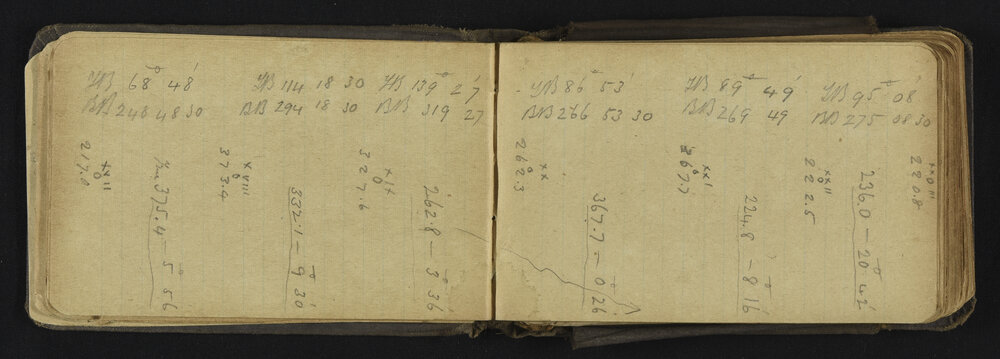 FB 68° 48'
BB 248 48 30
FB 114 18 30
BB 294 18 30
FB 139° 27'
BB 319 27
XXII
0
217.0
375.4 5° 56
XVIII
0
373.4
332.1 - 9° 30'
XIX
0
327.6
262.8 - 3° 36'
FB 86° 53'
BB 266 53 30
FB 89° 49'
BB 269 49
FB 95° 08'
BB 275 08 30
XX
0
262.3
367.7 - 0° 26'
XXI
0
367.7
224.8 - 8° 16'
XXII
0
222.5
236.0 - 20° 42'
XXIII
0
220.8